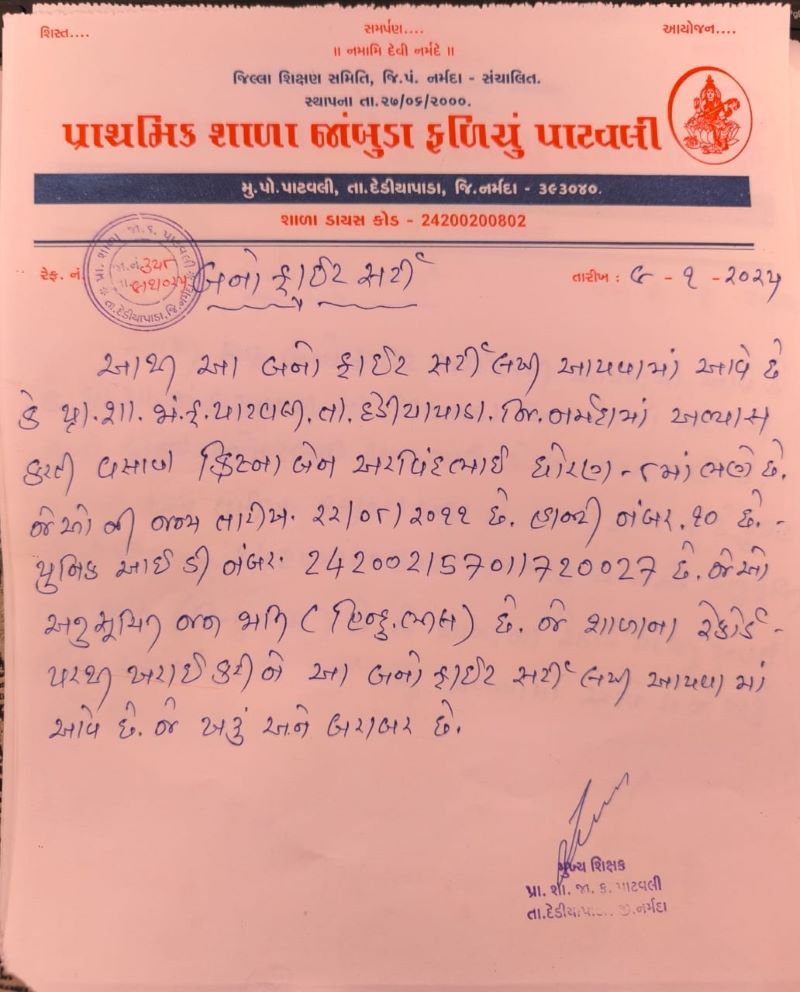 શિસ્ત.... સમર્પણ.... આયોજન....
॥ નમામિ દેવી નર્મદે ॥
જિલ્લા શિક્ષણ સમિતિ, જિ.પં. નર્મદા - સંચાલિત.
સ્થાપના તા.૨૭/૦૬/૨૦૦૦.
પ્રાથમિક શાળા જાંબુડા ફળિયું પાટવલી
મુ.પો.પાટવલી, તા.દેડીયાપાડા, જિ.નર્મદા - ૩૯૩૦૪૦.
શાળા ડાયસ કોડ - 24200200802
રેફ. નં. બોનોફાઈટ સર્ટી તારીખ : - ૧ - ૨૦૨૫
પ્રા. શાળા જા. ફ. પાટવલી
જા.નં.
તા.દેડીયાપાડા,જિ.નર્મદા
આથી આ બનોફાઈટ સર્ટી લખી આપવામાં આવે છે
કે પ્રા.શા. જાં.ફ.પાટવલી, તા. દેડીયાપાડા. જિ.નર્મદામાં અભ્યાસ
કરતી વસાવા ક્રિષ્ના બેન અરવિંદભાઈ ધોરણ -૮માં ભણે છે.
જેઓ ની જન્મ તારીખ. ૨૨/૦૮/૨૦૧૧ છે. હાજરી નંબર. ૧૦ છે. -
યુનિક આઈ ડી નંબર. 242002157011720027 છે. જેઓ
અનુસૂચિત જન જાતિ ( હિન્દુ.ભીલ) છે. જે શાળાના રેકોર્ડ -
પરથી ખરાઈ કરીને આ બનોફાઈટ સર્ટી લખી આપવા માં
આવે છે. જે ખરું અને બરાબર છે.
મુખ્ય શિક્ષક
પ્રા. શા. જા. ફ. પાટવલી
તા.દેડીયાપાડા જી.નર્મદા